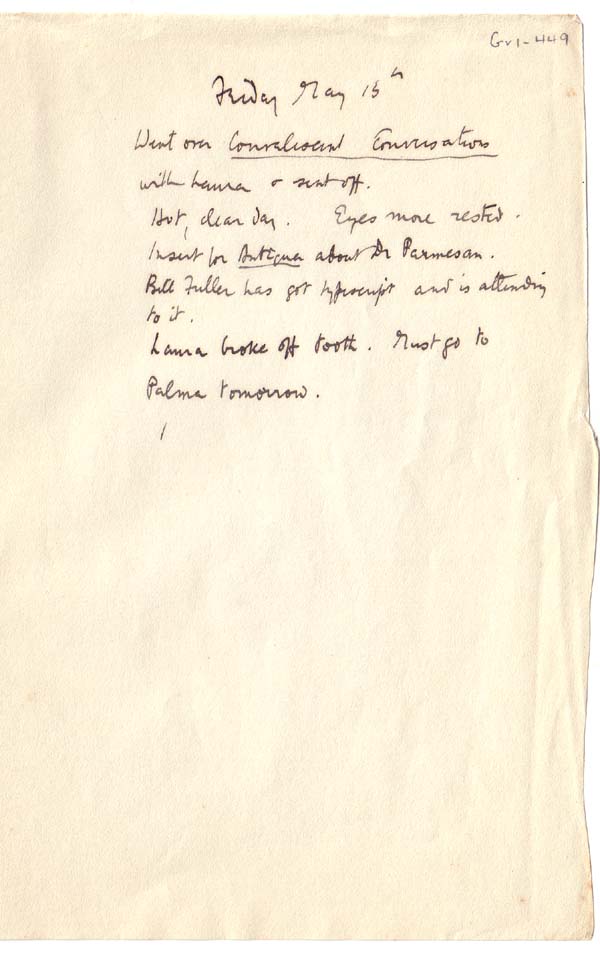 Gv1-449
Friday May 15th
Went over Convalescent Conversations
with Laura & sent off.
Hot, clear day. Eyes more rested.
Insert for Antigua about Dr Parmesan.
Bill Fuller has got typescript and is attending
to it.
Laura broke off tooth. Must go to
Palma tomorrow.